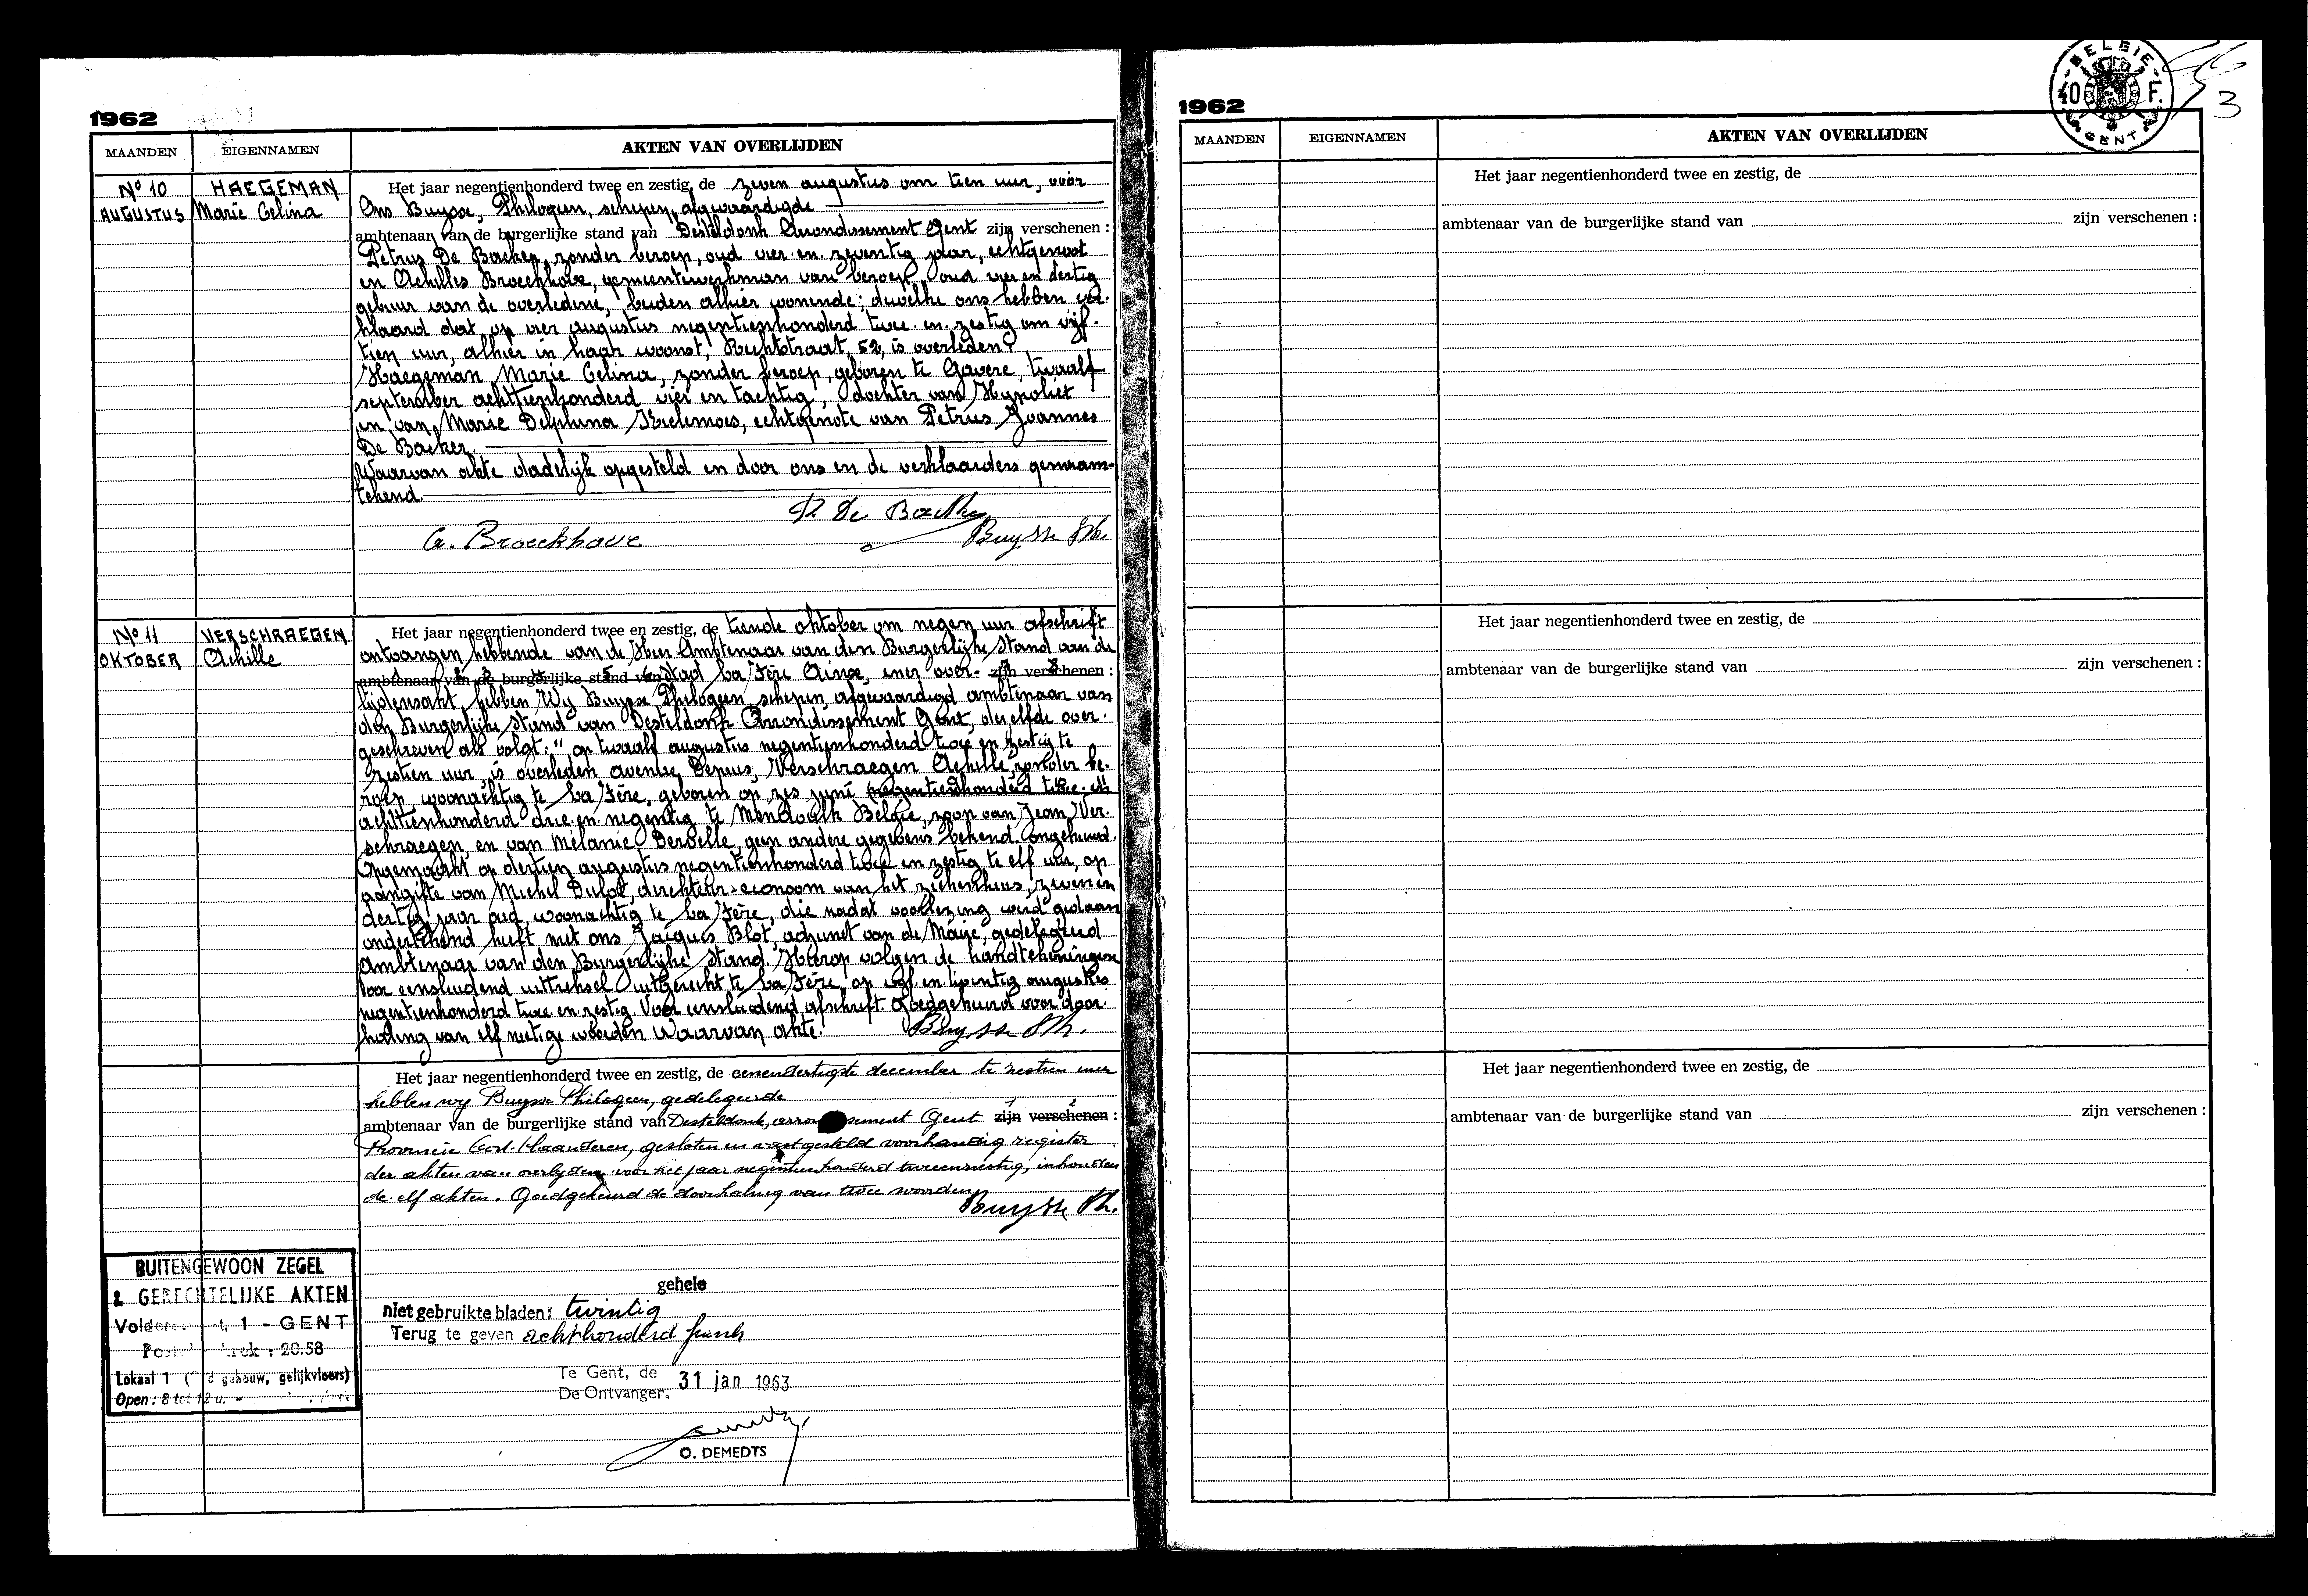 1962
MAANDEN EIGENNAMEN AKTEN VAN OVERLIJDEN
No 10 HAEGEMAN
AUGUSTUS Marie Celina
Het jaar negentienhonderd twee en zestig, de zeven augustus om tien uur, vóór
Ons Buysse, Philogeen, schepen, afgevaardigde
ambtenaar van de burgerlijke stand van Desteldonk Arrondissement Gent zijn verschenen :
Petrus De Backer, zonder beroep, oud vier en zeventig jaar, echtgenoot
en Achilles Broeckhove, gemeentewerkman van beroep, oud vier en dertig
gebuur van de overledene, beiden alhier wonende; dewelke ons hebben ver-
klaard dat op vier augustus negentienhonderd twee en zestig om vijf-
tien uur, alhier in haar woonst, Rechtstraat, 52, is overleden:
Haegeman Marie Celina, zonder beroep, geboren te Gavere, twaalf
september achttienhonderd vier en tachtig, dochter van Hypoliet
en van Marie Delphina Kielemoes, echtgenote van Petrus Joannes
De Backer.
Waarvan akte dadelijk opgesteld en door ons en de verklaarders genaam-
tekend.
P. De Backer
A. Broeckhove Buysse Ph.
No 11 VERSCHRAEGEN
OKTOBER Achille
Het jaar negentienhonderd twee en zestig, de tiende oktober om negen uur afschrift
ontvangen hebbende van de Heer Ambtenaar van den Burgerlijke Stand van de
ambtenaar van de burgerlijke stand van Stad La Fère Aisne, ener over- zijn verschenen :
lijdensakt, hebben Wij Buysse Philogeen, schepen, afgevaardigd ambtenaar van
den Burgerlijke Stand van Desteldonk Arrondissement Gent, dezelfde over-
geschreven als volgt: "op twaalf augustus negentienhonderd twee en zestig te
zestien uur, is overleden avenue Dupuis, Verschraegen Achille, zonder be-
roep, woonachtig te La Fère, geboren op zes juni negentienhonderd twee en
achttienhonderd drie en negentig te Mendonk België, zoon van Jean Ver-
schraegen, en van Mélanie Dervelle, geen andere gegevens bekend. ongehuwd.
Opgemaakt op dertien augustus negentienhonderd twee en zestig te elf uur, op
aangifte van Michel Dulot, direkteur-econoom van het ziekenhuis, zeven en
dertig jaar oud, woonachtig te La Fère, die nadat voorlezing werd gedaan
ondertekend heeft met ons Jacques Blot, adjunct van de Maire, gedelegeerd
Ambtenaar van den Burgerlijke Stand. Hierop volgen de handtekeningen
Voor eensluidend uittreksel uitgereikt te La Fère, op vijf en twintig augustus
negentienhonderd twee en zestig. Voor eensluidend afschrift. Goedgekeurd voor door-
haling van elf nietige woorden Waarvan akte. Buysse Ph.
Het jaar negentienhonderd twee en zestig, de eenendertigste december te zestien uur
hebben wij Buysse Philogeen, gedelegeerde
ambtenaar van de burgerlijke stand van Desteldonk, arrondissement Gent zijn verschenen :
Provincie Oost-Vlaanderen, gesloten en vastgesteld voorhandig register
der akten van overlijden voor het jaar negentienhonderd tweeenzestig, inhouden
de elf akten. Goedgekeurd de doorhaling van twee woorden.
Buysse Ph.
BUITENGEWOON ZEGEL
& GERECHTELIJKE AKTEN
1 - GENT
20.58
Lokaal 1 gebouw, gelijkvloers)
Open: 8 tot 12 u.
gehele
niet gebruikte bladen: twintig
Terug te geven achthonderd frank
Te Gent, de
De Ontvanger. 31 jan 1963
O. DEMEDTS
1962
BELGIE
40 F.
GENT
3
MAANDEN EIGENNAMEN AKTEN VAN OVERLIJDEN
Het jaar negentienhonderd twee en zestig, de
ambtenaar van de burgerlijke stand van zijn verschenen :
Het jaar negentienhonderd twee en zestig, de
ambtenaar van de burgerlijke stand van zijn verschenen :
Het jaar negentienhonderd twee en zestig, de
ambtenaar van de burgerlijke stand van zijn verschenen :